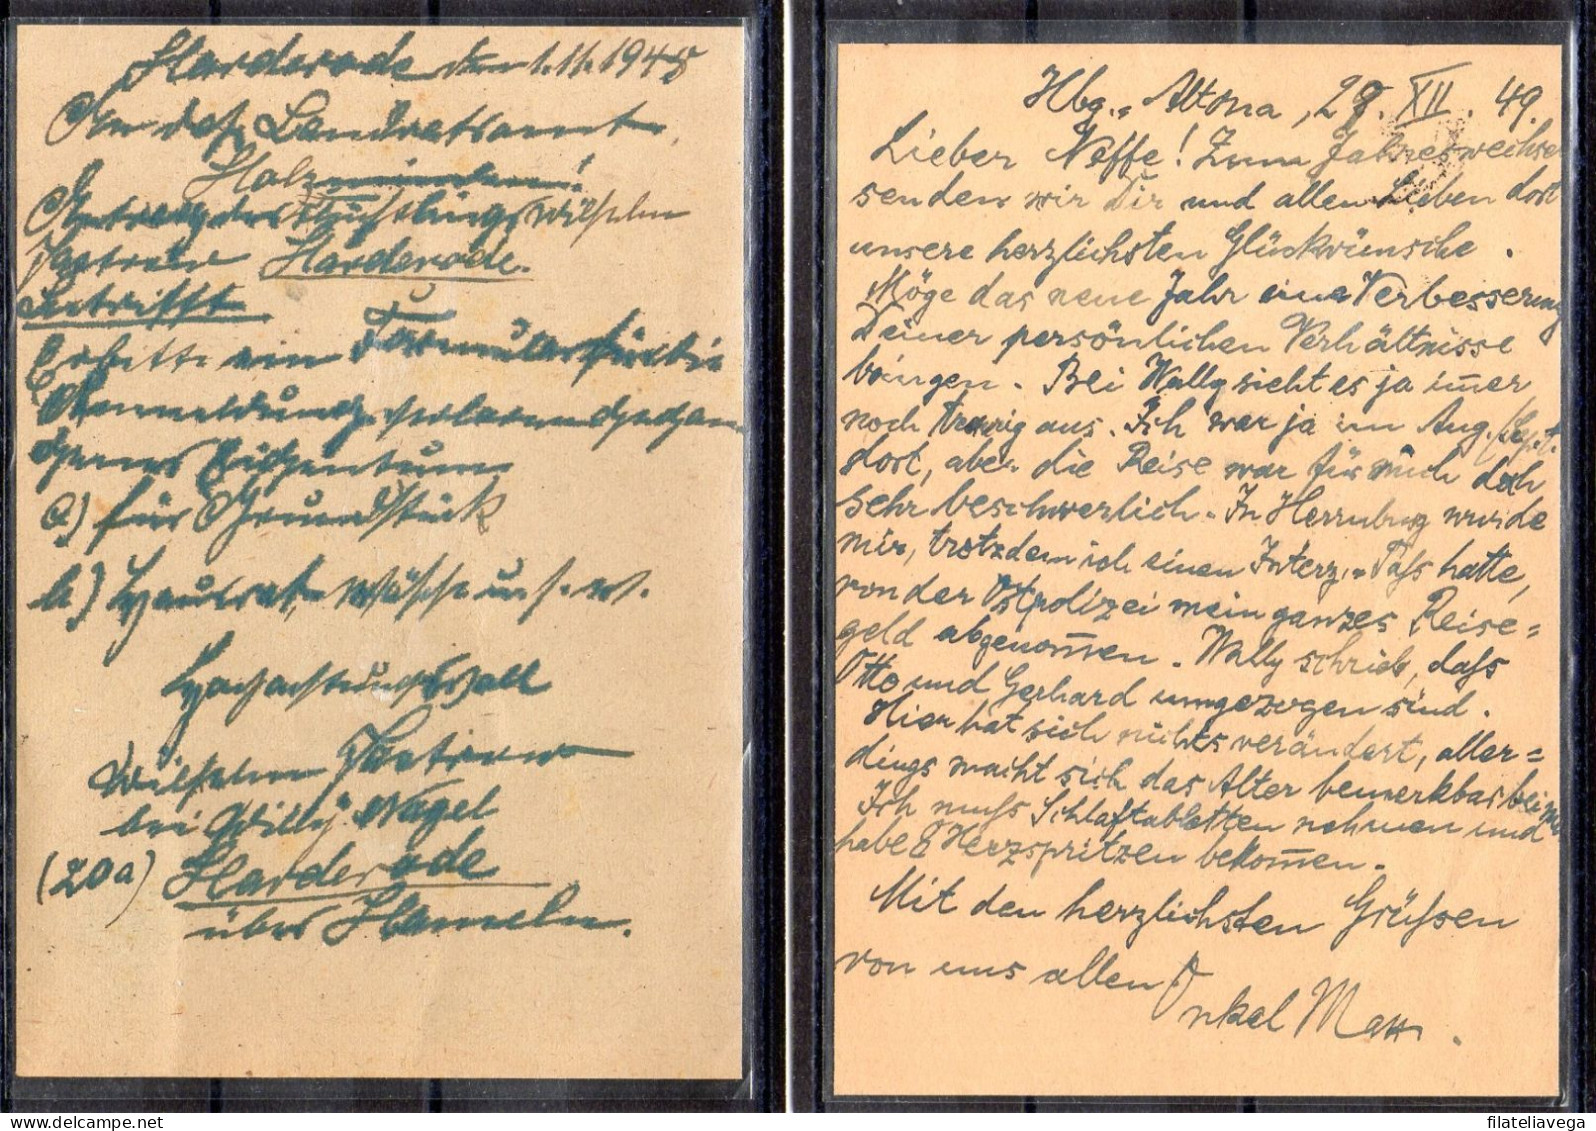 Harderode den 1.11.1948
An das Landratsamt
Holzminden!
Antrag des Flüchtlings Wilhelm
Harderode.
Betrifft
Erbitte ein Formular für die
Anmeldung verlorengegan
genes Eigentum
a) für Grundstück
b) Hausrat, Wäsche u.s.w.
Hochachtungsvoll
Wilhelm
bei Willy Nagel
(20a) Harderode
über Hameln.
Hbg.-Altona, 28. XII. 49.
Lieber Neffe! Zum Jahreswechsel
senden wir Dir und allen Lieben dort
unsere herzlichsten Glückwünsche.
Möge das neue Jahr eine Verbesserung
Deiner persönlichen Verhältnisse
bringen. Bei Wally sieht es ja immer
noch traurig aus. Ich war ja im Aug./Sept.
dort, aber die Reise war für mich doch
sehr beschwerlich. In Herrnburg wurde
mir, trotzdem ich einen Interz.-Pass hatte,
von der Ostpolizei mein ganzes Reise=
geld abgenommen. Wally schrieb, dass
Otto und Gerhard umgezogen sind.
Hier hat sich nichts verändert, aller=
dings macht sich das Alter bemerkbar bei mir
Ich muss Schlaftabletten nehmen und
habe 8 Herzspritzen bekommen.
Mit den herzlichsten Grüssen
von uns allen
Onkel Max.
filateliavega